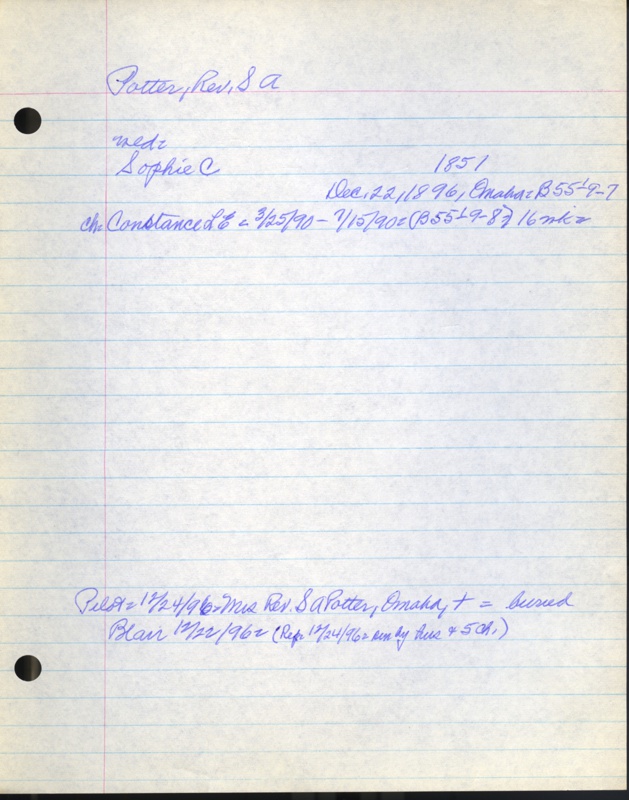 Potter, Rev. S A
med=
Sophie C 1851
Dec. 22, 1896, Omaha = B55-L9-7
ch= Constance L E = 3/25/90 - 7/15/90 = (B55-L9-8) 16 wk =
Pilot = 12/24/96 = Mrs Rev. S A Potter, Omaha, + = buried
Blair 12/22/96 = (Rep. 12/24/96 = by hus + 5 ch.)